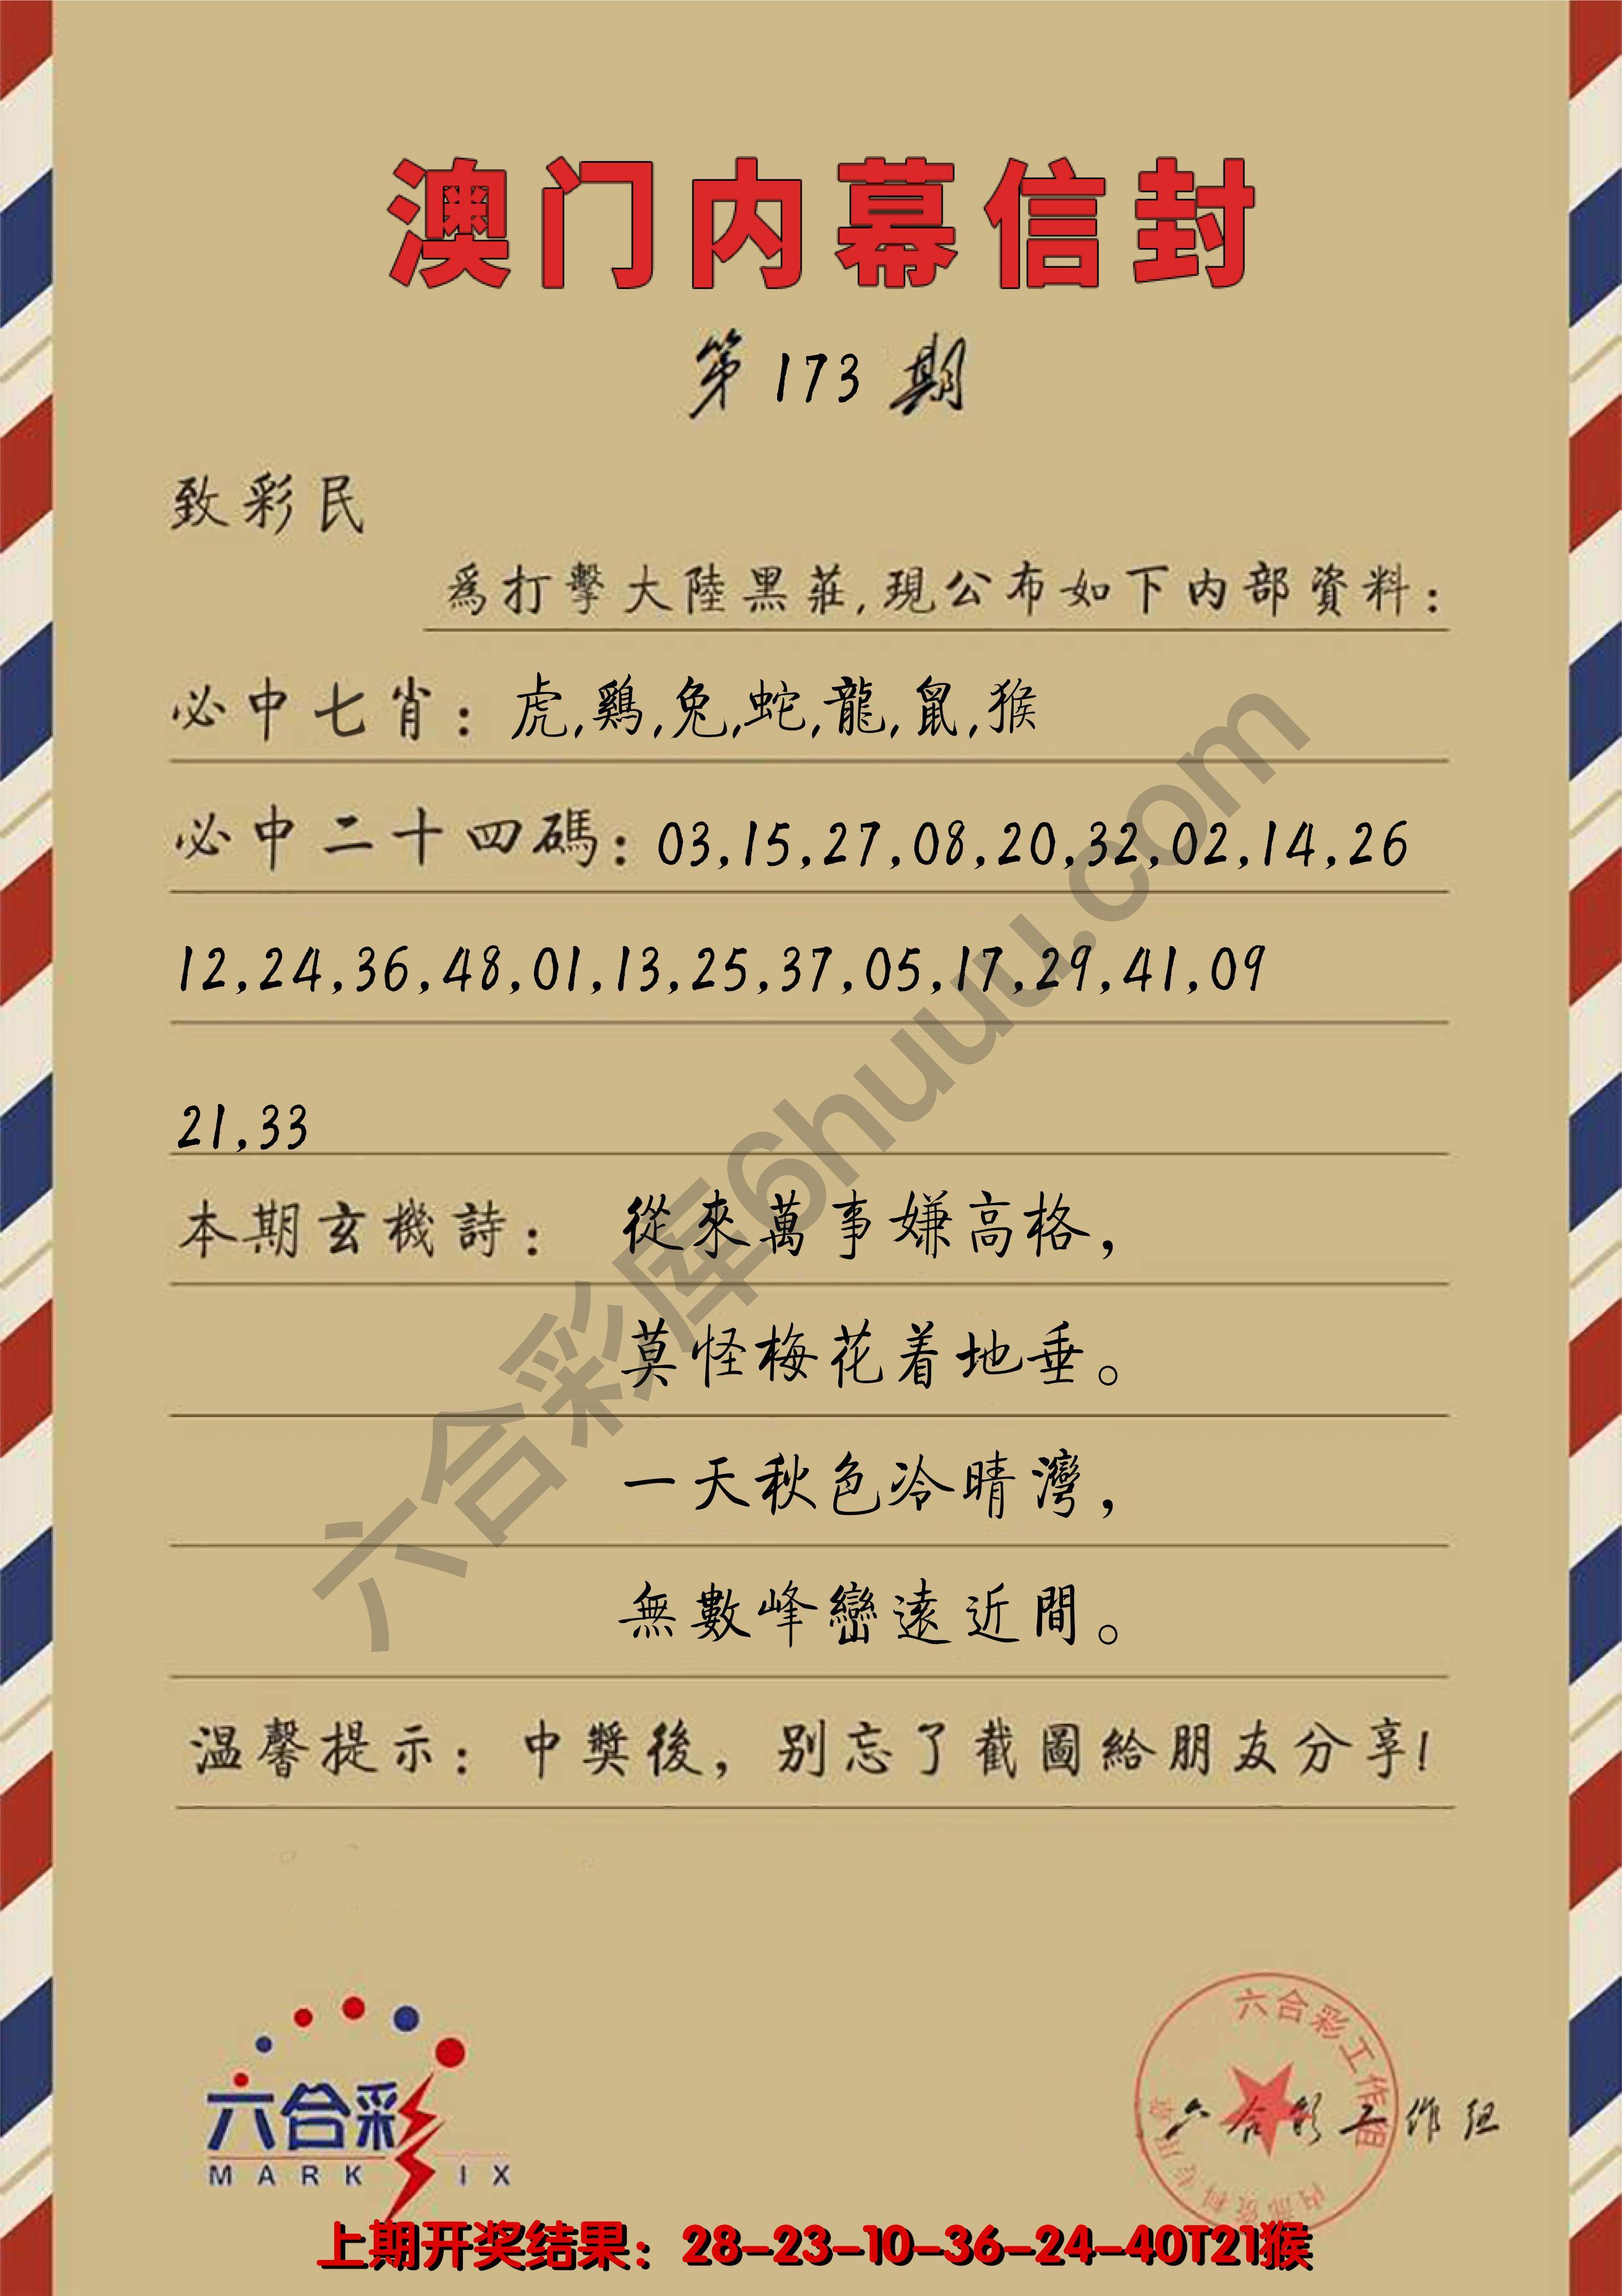 澳门内幕信封
第 173 期
致彩民
爲打擊大陸黑莊,現公布如下内部資料:
必中七肖: 虎,鷄,兔,蛇,龍,鼠,猴
必中二十四碼: 03,15,27,08,20,32,02,14,26
12,24,36,48,01,13,25,37,05,17,29,41,09
21,33
本期玄機詩: 從來萬事嫌高格,
莫怪梅花着地垂。
一天秋色冷晴灣,
無數峰巒遠近間。
温馨提示: 中獎後, 别忘了截圖給朋友分享!
六合彩库6huuu.com
六合彩
MARK SIX
六合彩工作组
内部资料专用章
六合彩工作组
上期开奖结果: 28-23-10-36-24-40T21猴